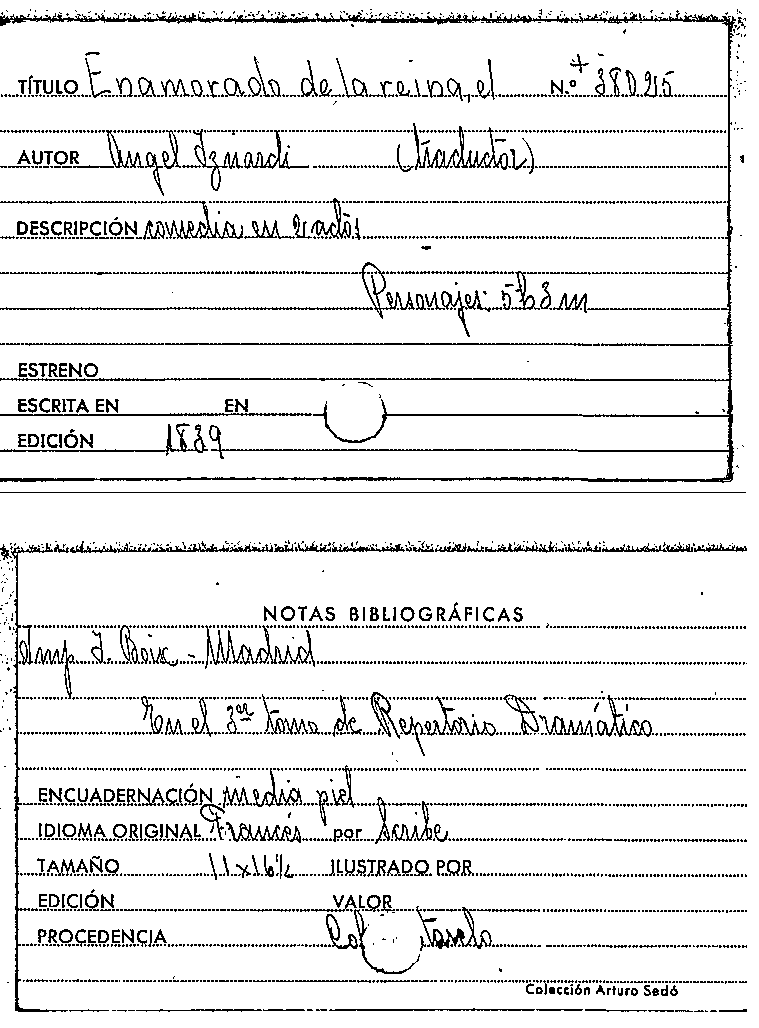 TÍTULO Enamorado de la reina, el N.º + 38025
AUTOR Angel Iznardi (traductor)
DESCRIPCIÓN comedia en 2 actos
Personajes: 5 h 3 m
ESTRENO
ESCRITA EN EN
EDICIÓN 1839
NOTAS BIBLIOGRÁFICAS
Imp I. Boix - Madrid
En el 3er tomo de Repertorio Dramático
ENCUADERNACIÓN media piel
IDIOMA ORIGINAL Francés por Scribe
TAMAÑO 11x16½ ILUSTRADO POR
EDICIÓN VALOR
PROCEDENCIA
Colección Arturo Sedó